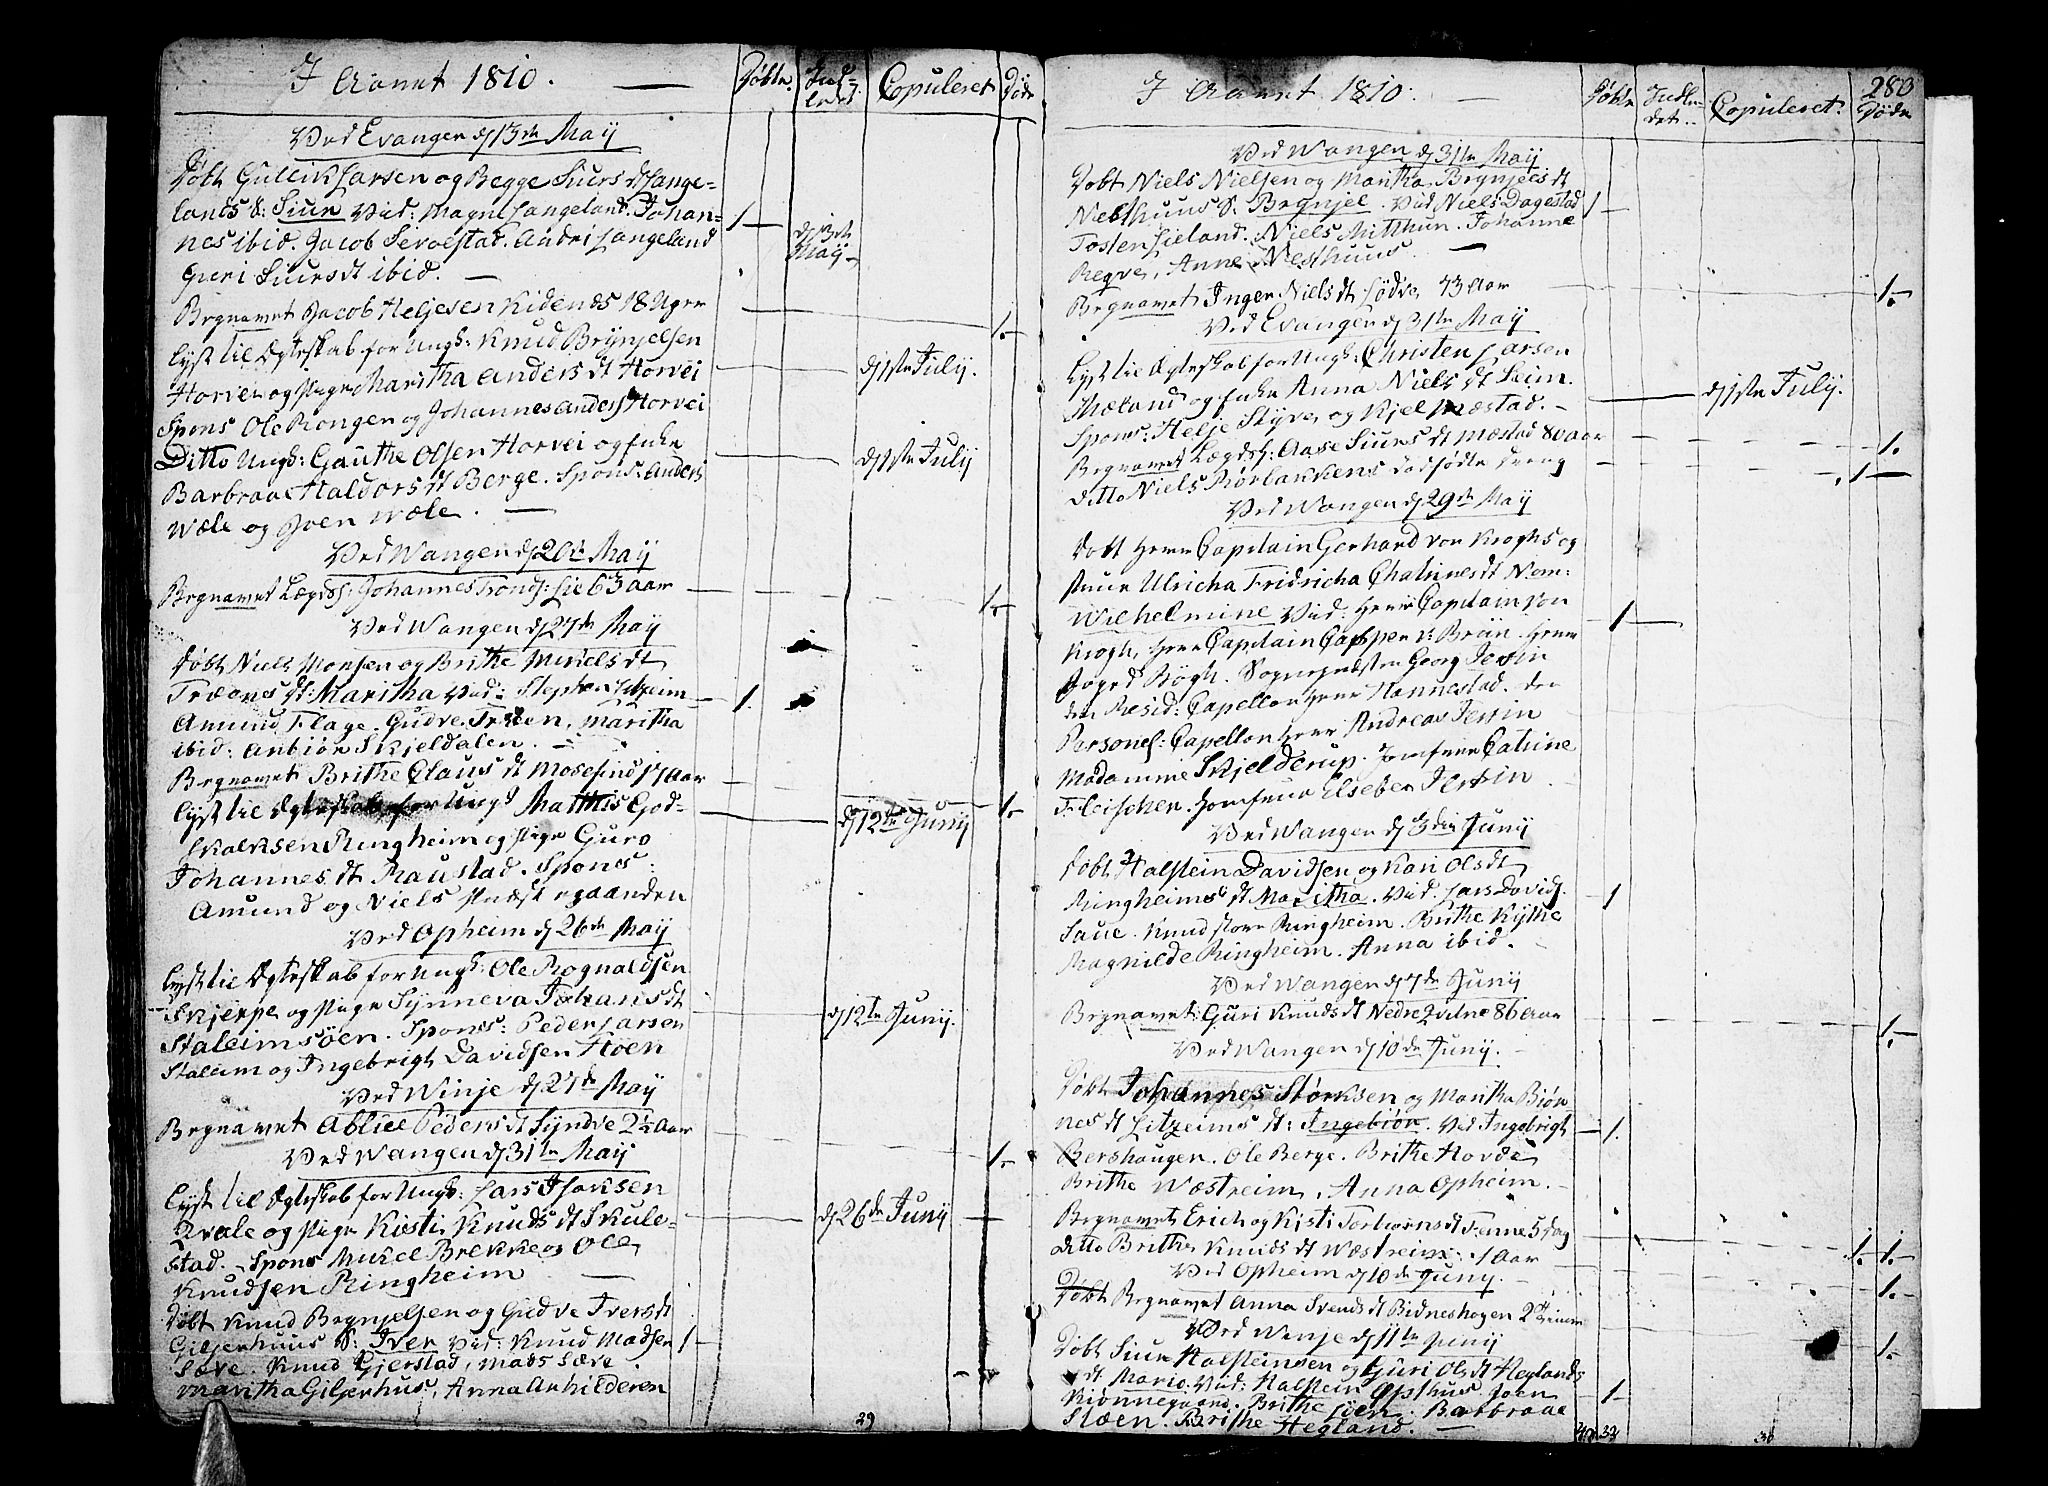 I Aaret 1810. Døbte. Ind-ledet. Copuleret Døde
Ved Evanger d 13de Maij
Døbt Gullik Larsen og Begge Siurs dt Lange-
lands S: Siur Vid: Magne Langeland. Johan-
nes ibid. Jacob Sevaldstad. Andri Langeland 1
Guri Siurs dt ibid. d 13de Maij
Begravet Jacob Heljesen Kidends 18 Uger 1.
Lyst til Ægteskab for Ungk: Knud Brynjelsen
Horvei og Pige Maritha Anders dt Horvei d 1ste Julij.
Spons Ole Rongen og Johannes Anders: Horvei
Ditto Ungk: Gauthe Olsen Horvei og Enke d 1ste Julij
Barbraae Haldors dt Berge. Spons: Anders
Wæle og Joen Wæle.
Ved Wangen d 20de Maij
Begravet Lægds: Johannes Tronds: Lie 63 Aar 1.
Ved Wangen d 27de Maij
Døbt Niels Monsen og Brithe Mikels dt
Træens dt: Maritha Vid: Stephen Litzeim 1.
Amund Flage. Gudve Træen. Maritha
ibid: Anbiør Skjeldalen.
Begravet Brithe Claus dt Mosefind 17 Aar 1.
Lyst til Ægteskab for Ungk Matthis God-
skalksen Ringheim og Pige Guro d 12te Junij
Johannes dt Raustad. Spons:
Amund og Niels Præstegaarden
Ved Opheim d 26de Maij
Lyst til Ægteskab for Ungk: Ole Rognaldsen
Skjerpe og Pige Synneva Johans dt d 12te Junij.
Staleimsøen. Spons: Peder Larsen
Staleim og Ingebrigt Davidsen Høen
Ved Winje d 27de Maij
Begravet Ablue Peders dt Tyndve 2½ Aar 1.
Ved Wangen d 31te Maij
Lyst til Ægteskab for Ungk: Lars Isaksen
Qvale og Pige Kisti Knuds dt Skule- d 26de Junij
stad. Spons Mikel Brekke og Ole
Knudsen Ringheim
Døbt Knud Brynjelsen og Gudve Ivers dt
Giljerhuus S: Iver Vid: Knud Madsen 1
Sæve. Knud Gjerstad, Mads Sæve.
Maritha Giljerhus. Anna Anhilderen
39
I Aaret 1810. Døbte Indle-det. Copuleret. 280 Døde
Ved Wangen d 31te Maij
Døbt Niels Nielsen og Maritha Brynjels dt
Nesthuus S. Brynjel. Vid Niels Dagestad 1
Tosten Lieland. Niels Mitthun. Johanne
Regve. Anne Nesthuus.
Begravet Inger Niels dt Lødve 73 Aar 1.
Ved Evanger d 31te Maij
Lyst til Ægteskab for Ungk: Christen Larsen
Mæland og Enke Anna Niels dt Seim. d 1ste Julij.
Spons: Helje Styve og Kjel Mæstad.
Begravet Lægds: Aase Siurs dt Mæstad 80 Aar 1.
Ditto Niels Rørlakkens dødfødte Dreng 1
Ved Wangen d 29de Maij
Døbt Herr Capitain Gerhard von Kroghs og
Frue Ulricha Fridricha Chatrines dt Nom:
Wilhelmine Vid: Herr Capitain von 1
Krogh, Herr Capitain Casper v: Bröin. Herr
Foged Bøgh. Sognepræsten Georg Jersin
den Resid: Capellan Herr Hannestad. den
Personel: Capellan Herr Andreas Jersin
Madamme Skjelderup. Jomfrue Catrine
Fleischer. Jomfrue Elseber Jersin
Ved Wangen d 3die Junij
Døbt Halstein Davidsen og Kari Ols dt
Ringheims dt Maritha. Vid. Lars Davids. 1
Saue. Knud store Ringheim. Brithe Kythe
Ragnilde Ringheim. Anna ibid.
Ved Wangen d 7de Junij
Begravet: Guri Knuds dt Nedre Qvitne 86 Aar 1.
Ved Wangen d 10de Junij.
Døbt Johannes Størksen og Maritha Biør-
nes dt Litzeims dt: Ingebiør. Vid Ingebrigt 1.
Bershaugen. Ole Berge. Brithe Hovde
Brithe Wæstreim. Anna Opheim.
Begravet Erich og Kisti Torbiørns dt Fenne 5 Dag 1. 1.
Ditto Brithe Knuds dt Wæstreim: 1 Aar 1.
Ved Opheim d 10de Junij.
Døbt Begravet Anna Svends dt Bidneshagen
Ved Winje d 11te Junij 1.
Døbt Siur Halsteinsen og Guri Ols dt Heglands
dt Marie. Vid: Halstein Opsthus. Joen 1
Kiønnegaard. Brithe Løen. Barbraae
Sloen. Brithe Hegland.
38